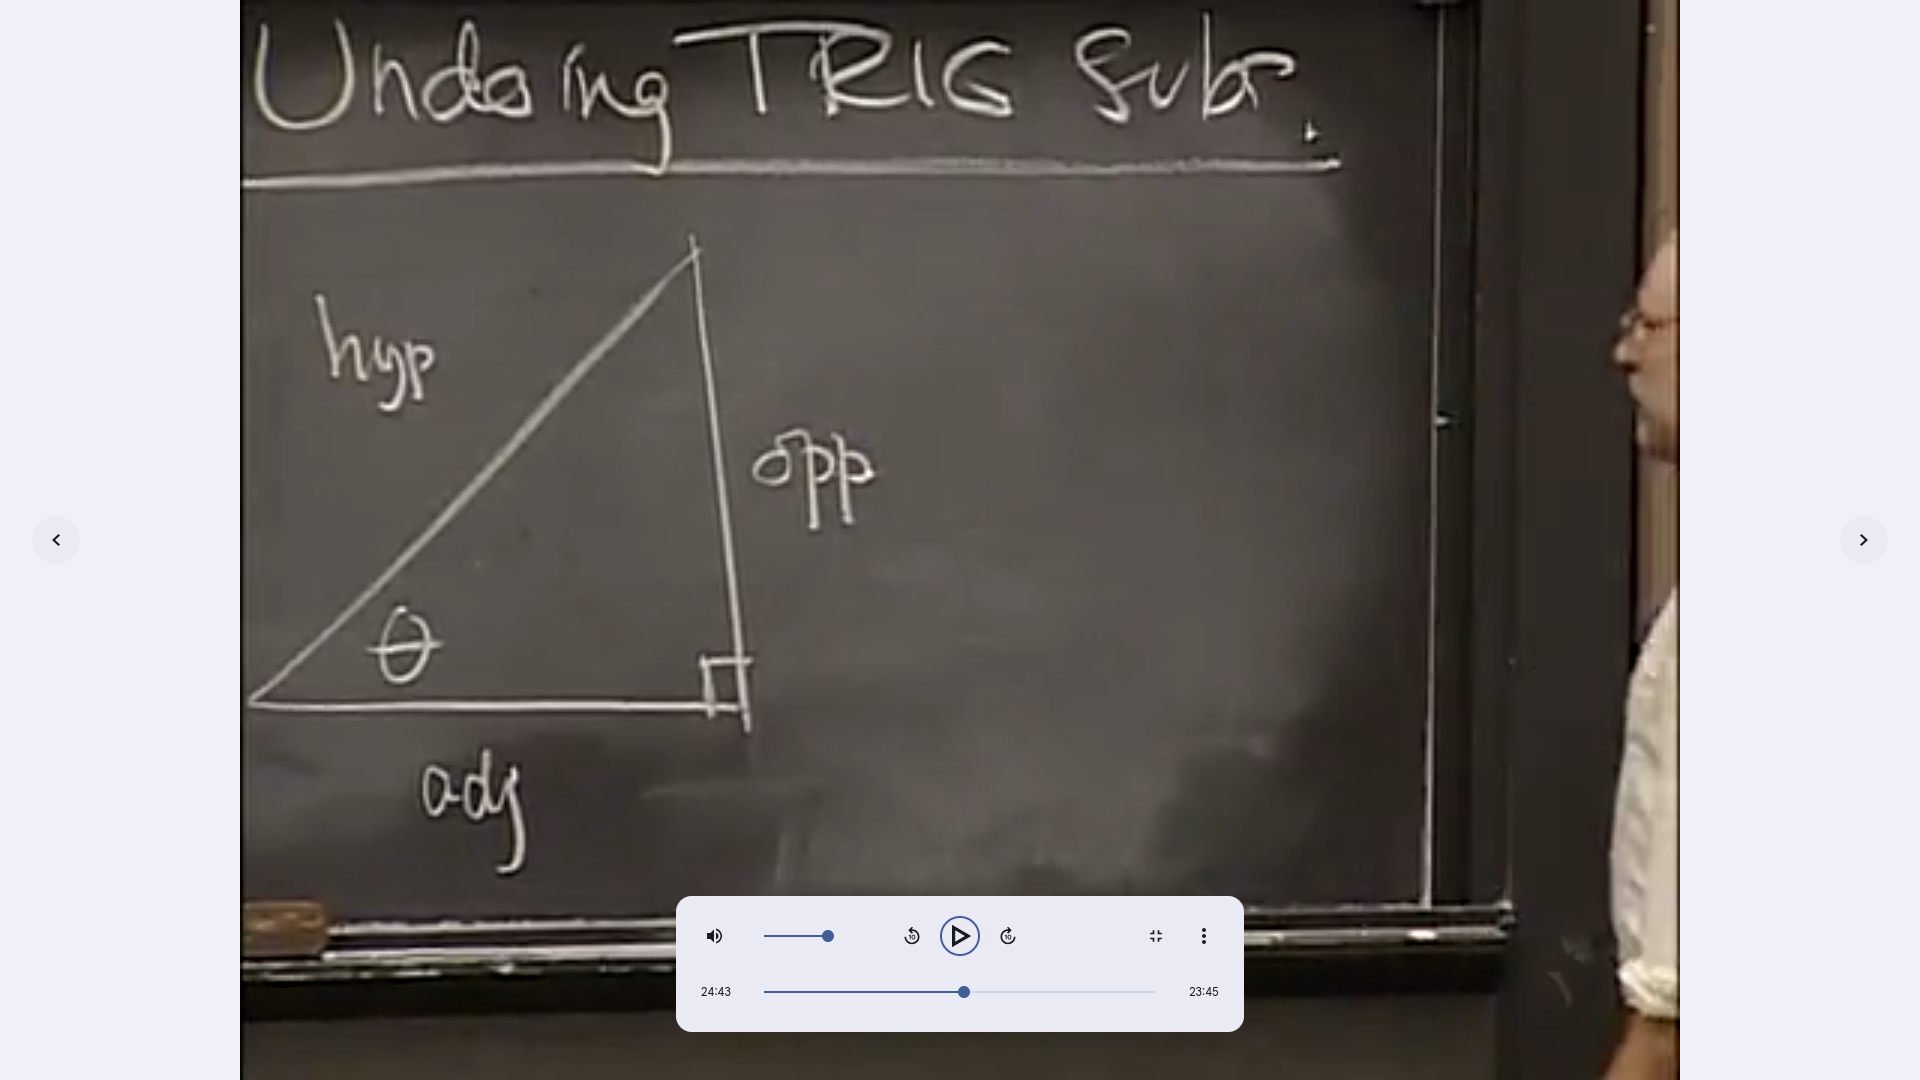 Undoing TRIG Subs.
hyp
opp
θ
adj
10
10
24:43
23:45